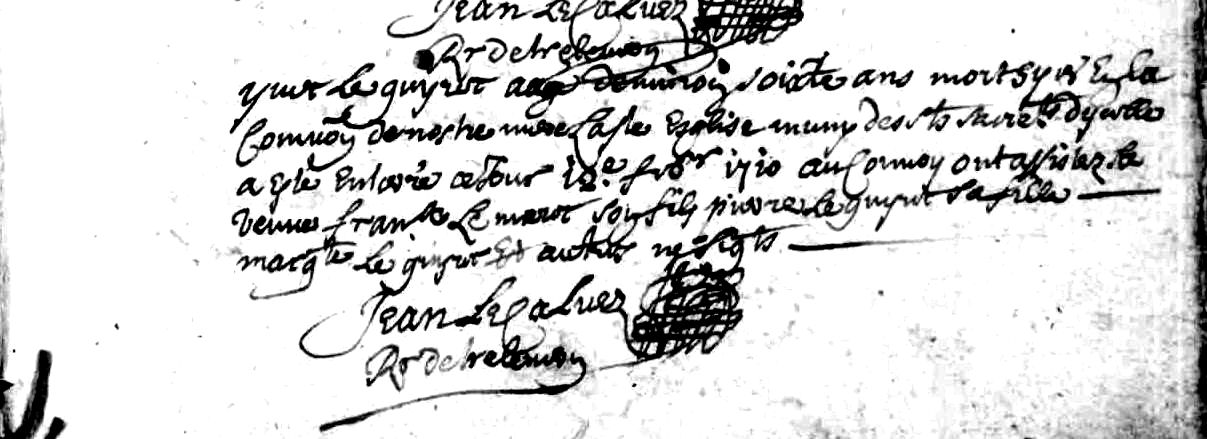 Jean Le Calvez
Rr de treleuron
yves Le guyrot aage denviron soixte ans mort hyer En La
Comuon de nostre mere La ste Esglise muny des sts sacrets dycelle
a esté Enterré ce jour 12.e 1710 au Convoy ont assistez Le
veuue franse Le son fils pierre Le guyrot sa fille
margte Le guyrot Et autres
Jean Le Calvez
Rr de treleuron